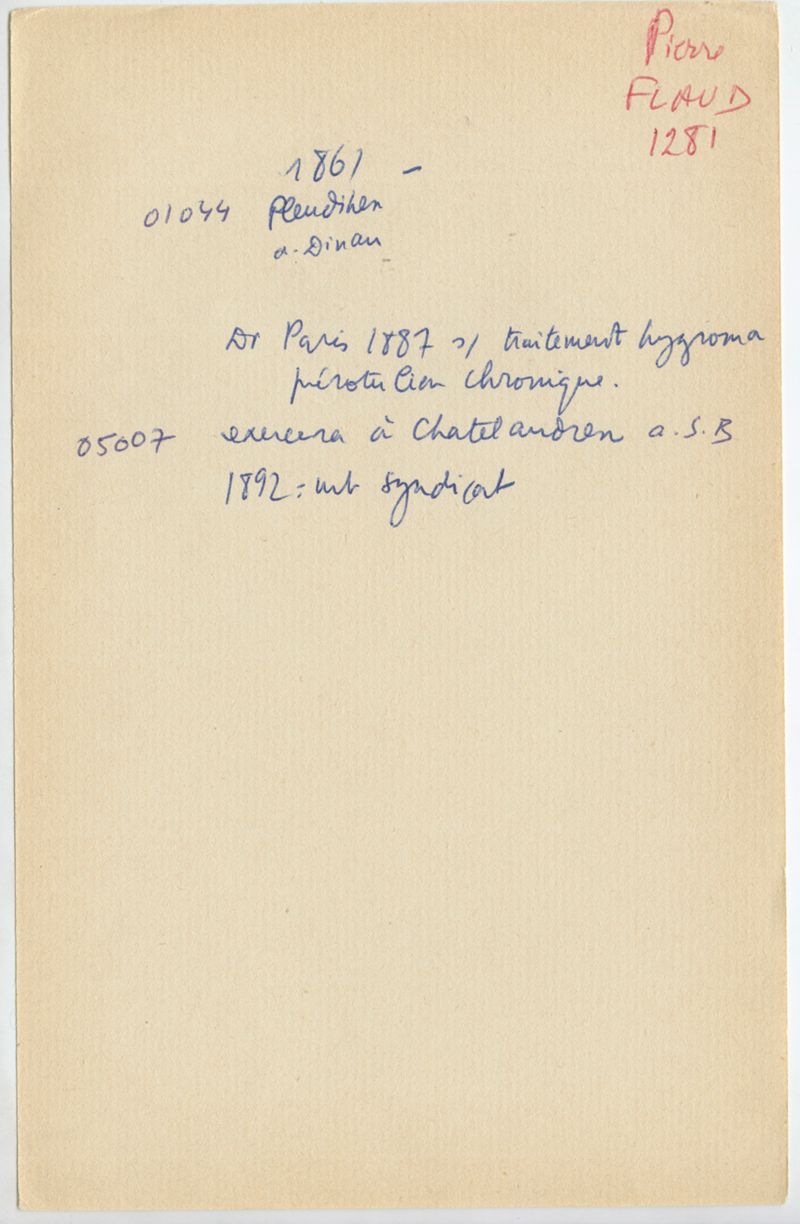 Pierre
FLAUD
1281
1861 -
01044 Pleudihen
a. Dinan
Dr Paris 1887 s/ traitement hygroma
pérotulien chronique.
05007 exercera à Chatelaudren a. S. B
1892 = mb syndicat